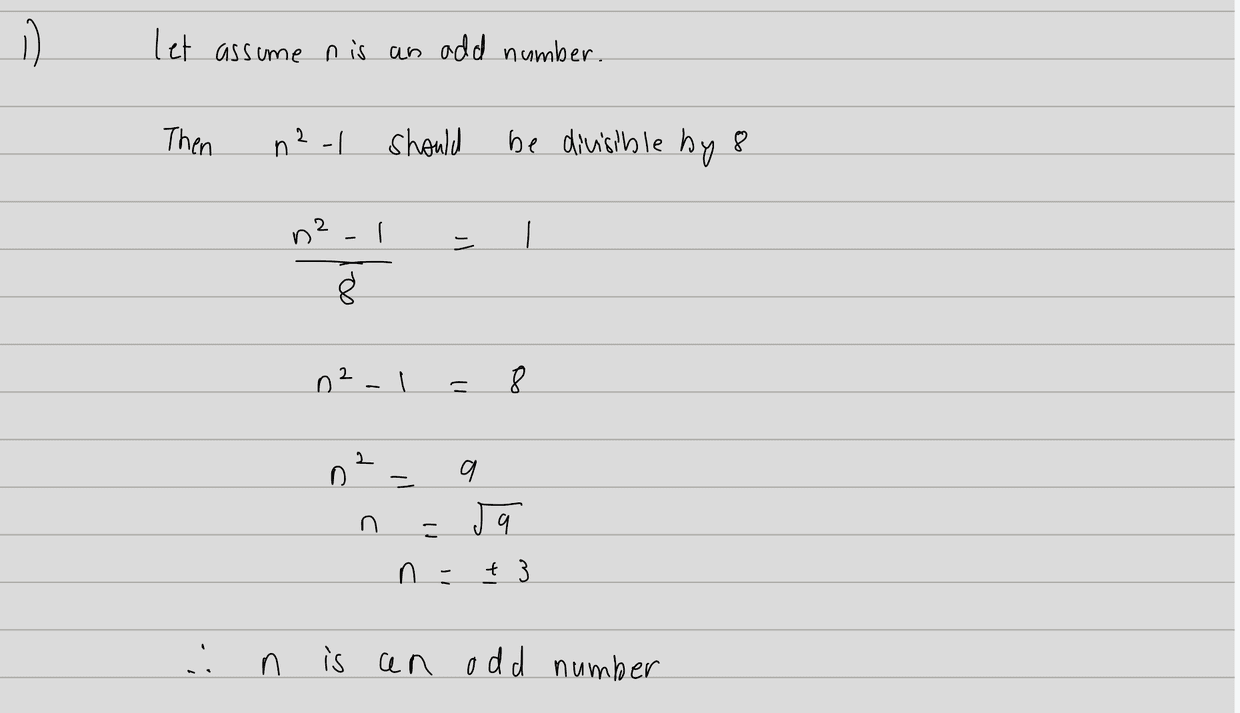 1) let assume n is an odd number.
Then n² -1 should be divisible by 8
n² - 1 = 1
8
n² - 1 = 8
n² = 9
n = √9
n = ± 3
∴ n is an odd number